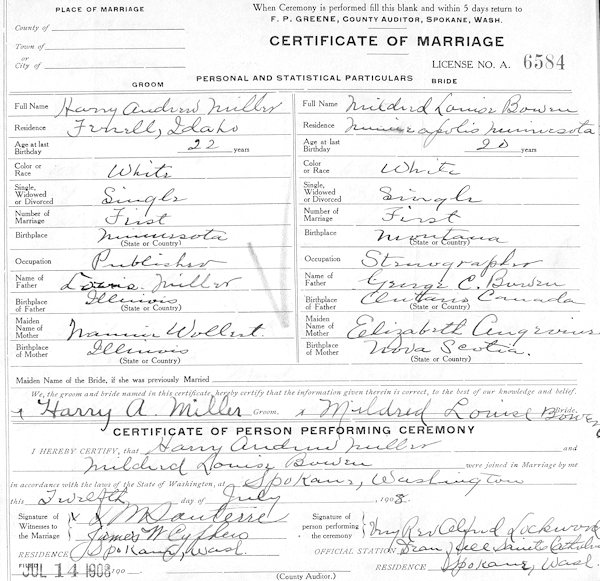 PLACE OF MARRIAGE
When Ceremony is performed fill this blank and within 5 days return to
F. P. GREENE, COUNTY AUDITOR, SPOKANE, WASH.
County of
Town of
or
City of
CERTIFICATE OF MARRIAGE
LICENSE NO. A. 6584
PERSONAL AND STATISTICAL PARTICULARS
GROOM BRIDE
Full Name Harry Andrew Miller Full Name Mildred Louise Bowen
Residence Ferrell, Idaho Residence Minneapolis Minnesota
Age at last Birthday 22 years Age at last Birthday 20 years
Color or Race White Color or Race White
Single, Widowed or Divorced Single Single, Widowed or Divorced Single
Number of Marriage First Number of Marriage First
Birthplace Minnesota Birthplace Montana
(State or Country) (State or Country)
Occupation Publisher Occupation Stenographer
Name of Father Louis Miller Name of Father George C. Bowen
Birthplace of Father Illinois Birthplace of Father Canada
(State or Country) (State or Country)
Maiden Name of Mother Maiden Name of Mother Elizabeth
Birthplace of Mother Illinois Birthplace of Mother Nova Scotia.
(State or Country) (State or Country)
Maiden Name of the Bride, if she was previously Married
We, the groom and bride named in this certificate, hereby certify that the information given therein is correct, to the best of our knowledge and belief.
Harry A. Miller Groom. Mildred Louise Bowen Bride.
CERTIFICATE OF PERSON PERFORMING CEREMONY
I HEREBY CERTIFY, that Harry Andrew Miller and
Mildred Louise Bowen were joined in Marriage by me
in accordance with the laws of the State of Washington, at Spokane, Washington
this Twelfth day of July 1908.
Signature of Witnesses to the Marriage
James W
Signature of person performing the ceremony Very Rev Alfred Lockwood
RESIDENCE Spokane, Wash. OFFICIAL STATION Dean, All Saints Cathedral
JUL 14 1908 190 RESIDENCE Spokane, Wash.
(County Auditor.)